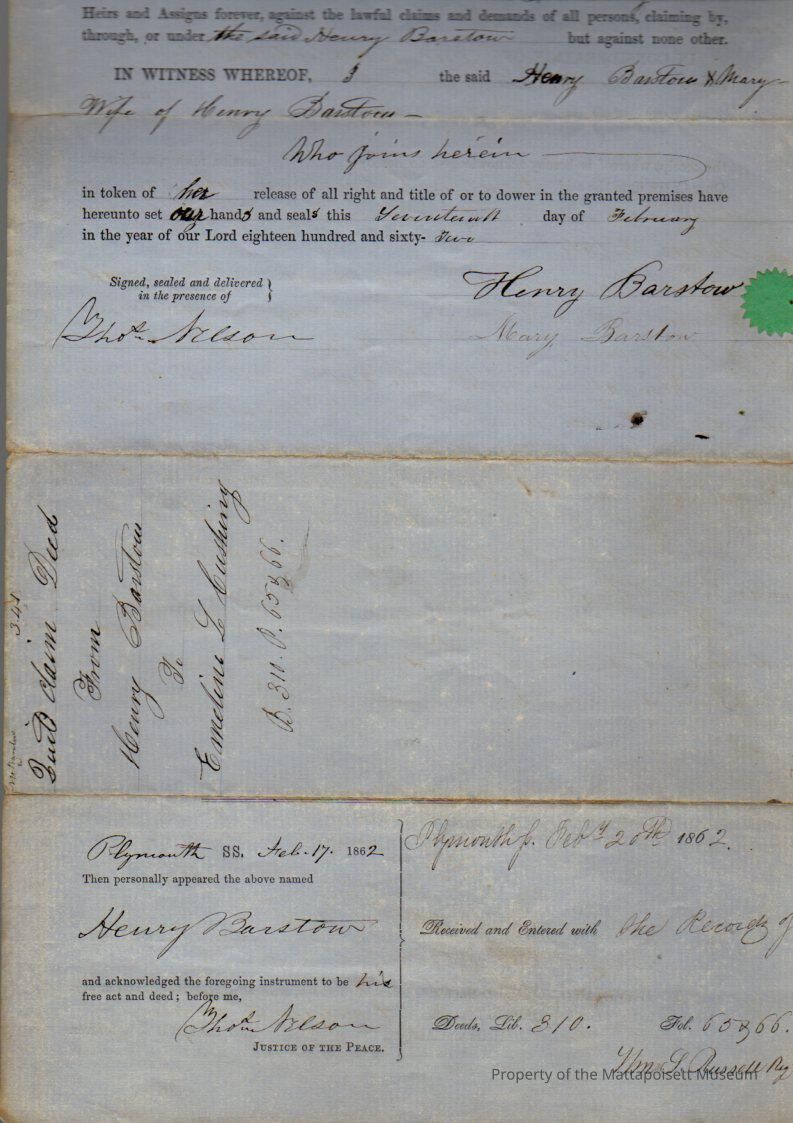 Heirs and Assigns forever, against the lawful claims and demands of all persons, claiming by,
through, or under the said Henry Barstow but against none other.
IN WITNESS WHEREOF, I the said Henry Barstow & Mary
Wife of Henry Barstow
Who joins herein
in token of her release of all right and title of or to dower in the granted premises have
hereunto set our hands and seals this Seventeenth day of February
in the year of our Lord eighteen hundred and sixty- Two
Signed, sealed and delivered
in the presence of
Henry Barstow
Thos. Nelson
Mary Barstow
341
Quit Claim Deed
From
Henry Barstow
To
Emeline L Cushing
B. 310. P. 65 & 66.
Plymouth SS. Feb. 17. 1862
Then personally appeared the above named
Henry Barstow
and acknowledged the foregoing instrument to be his
free act and deed; before me,
Thos. Nelson
JUSTICE OF THE PEACE.
Plymouth ss. Feby 20th 1862.
Received and Entered with the Records of
Deeds, Lib. 310. Fol. 65 & 66.
Wm. S. Russell Reg
Property of the Mattapoisett Museum